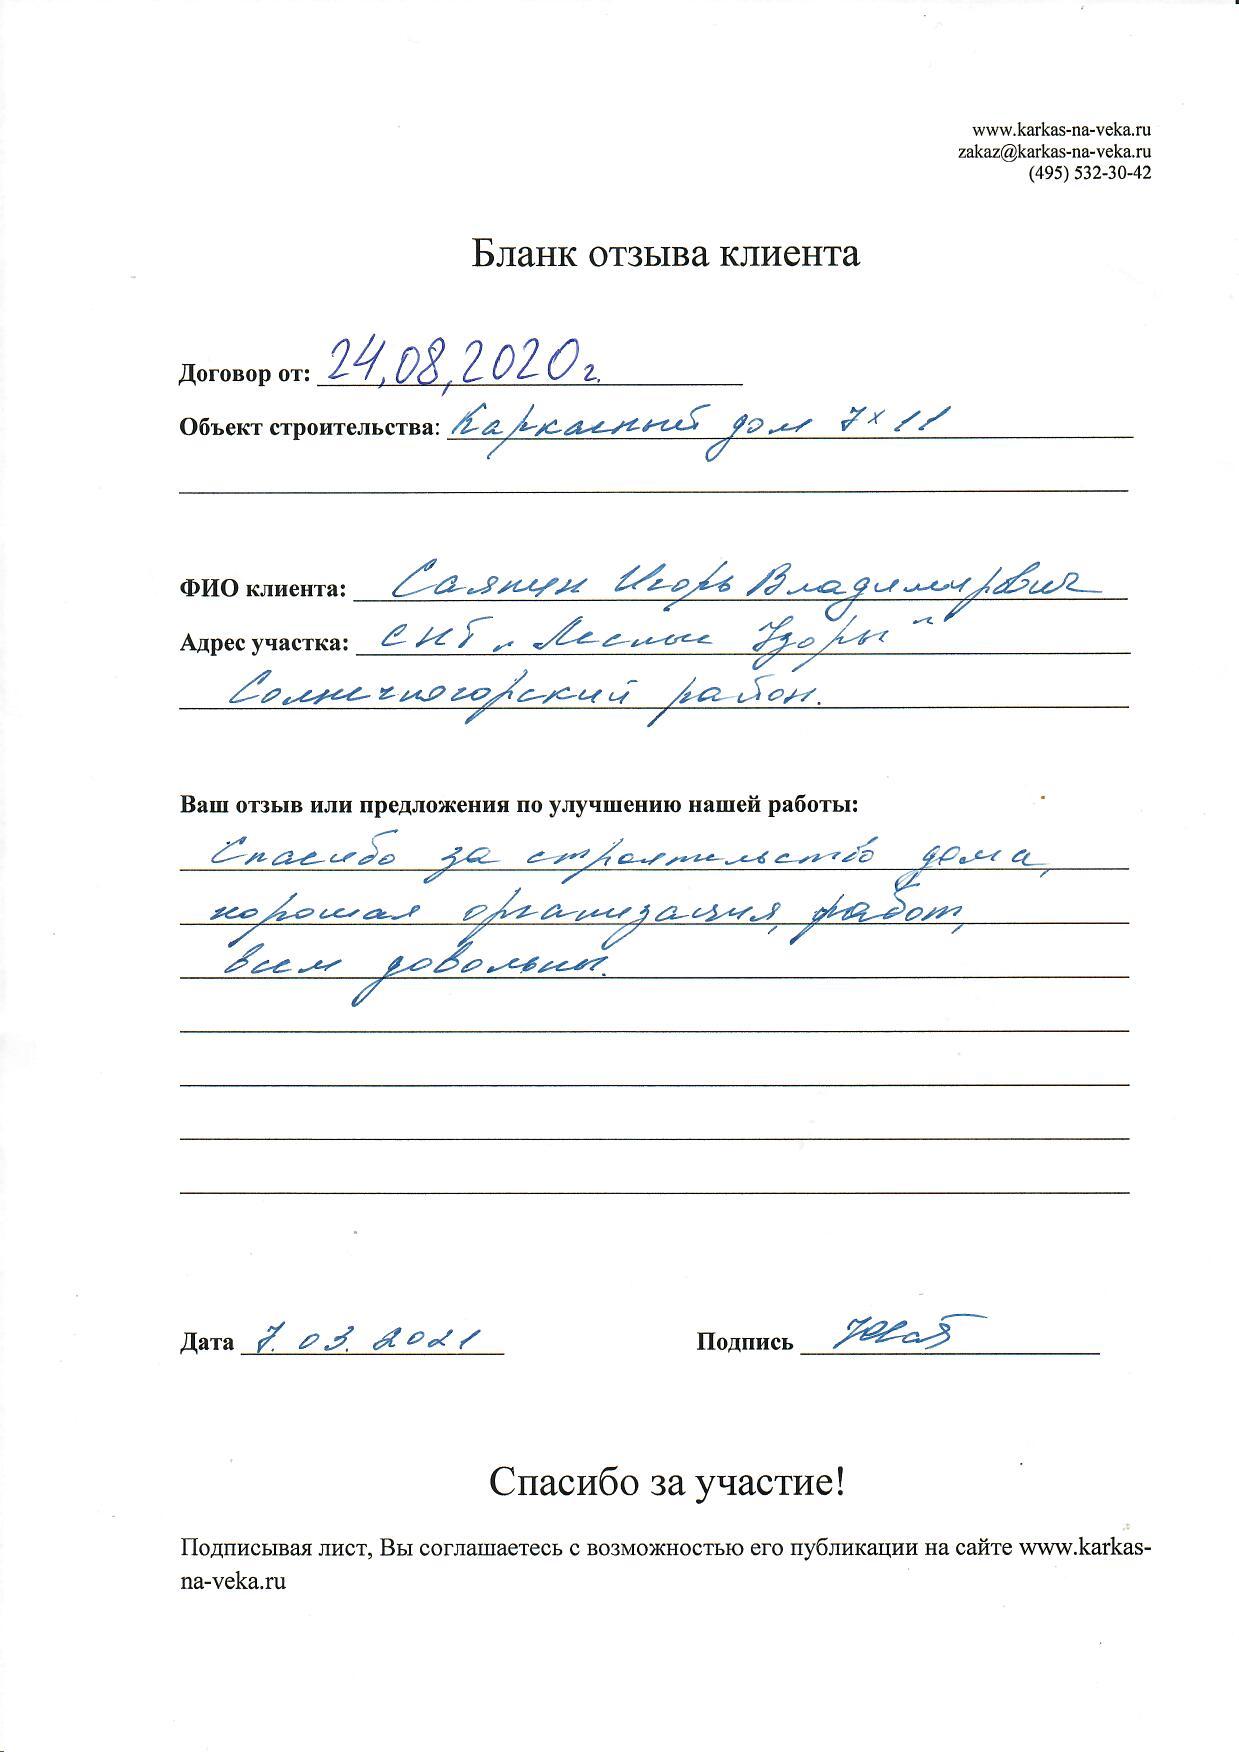 www.karkas-na-veka.ru
zakaz@karkas-na-veka.ru
(495) 532-30-42
Бланк отзыва клиента
Договор от: 24,08,2020г.
Объект строительства: Каркасный дом 7х11
ФИО клиента: Саяпин Игорь Владимирович
Адрес участка: СНТ „Лесные Узоры"
Солнечногорский район.
Ваш отзыв или предложения по улучшению нашей работы:
Спасибо за строительство дома,
хорошая организация, работ,
всем довольны.
Дата 7.03.2021 Подпись
Спасибо за участие!
Подписывая лист, Вы соглашаетесь с возможностью его публикации на сайте www.karkas-
na-veka.ru